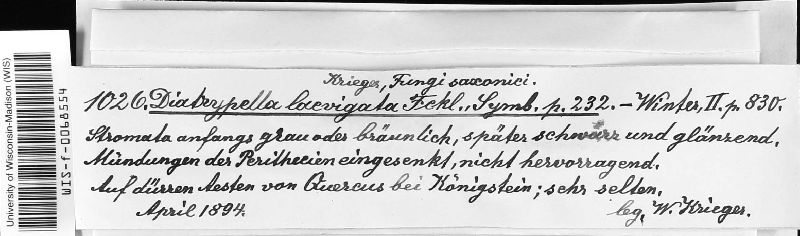 University of Wisconsin-Madison (WIS)
WIS-f-0068554
Krieger, Fungi saxonici.
1026. Diatrypella laevigata Fckl., Symb. p. 232. – Winter, II. p. 830.
Stromata anfangs grau oder bräunlich, später schwarz und glänzend.
Mündungen der Perithecien eingesenkt, nicht hervorragend.
Auf dürren Aesten von Quercus bei Königstein; sehr selten.
April 1894.
leg. W. Krieger.